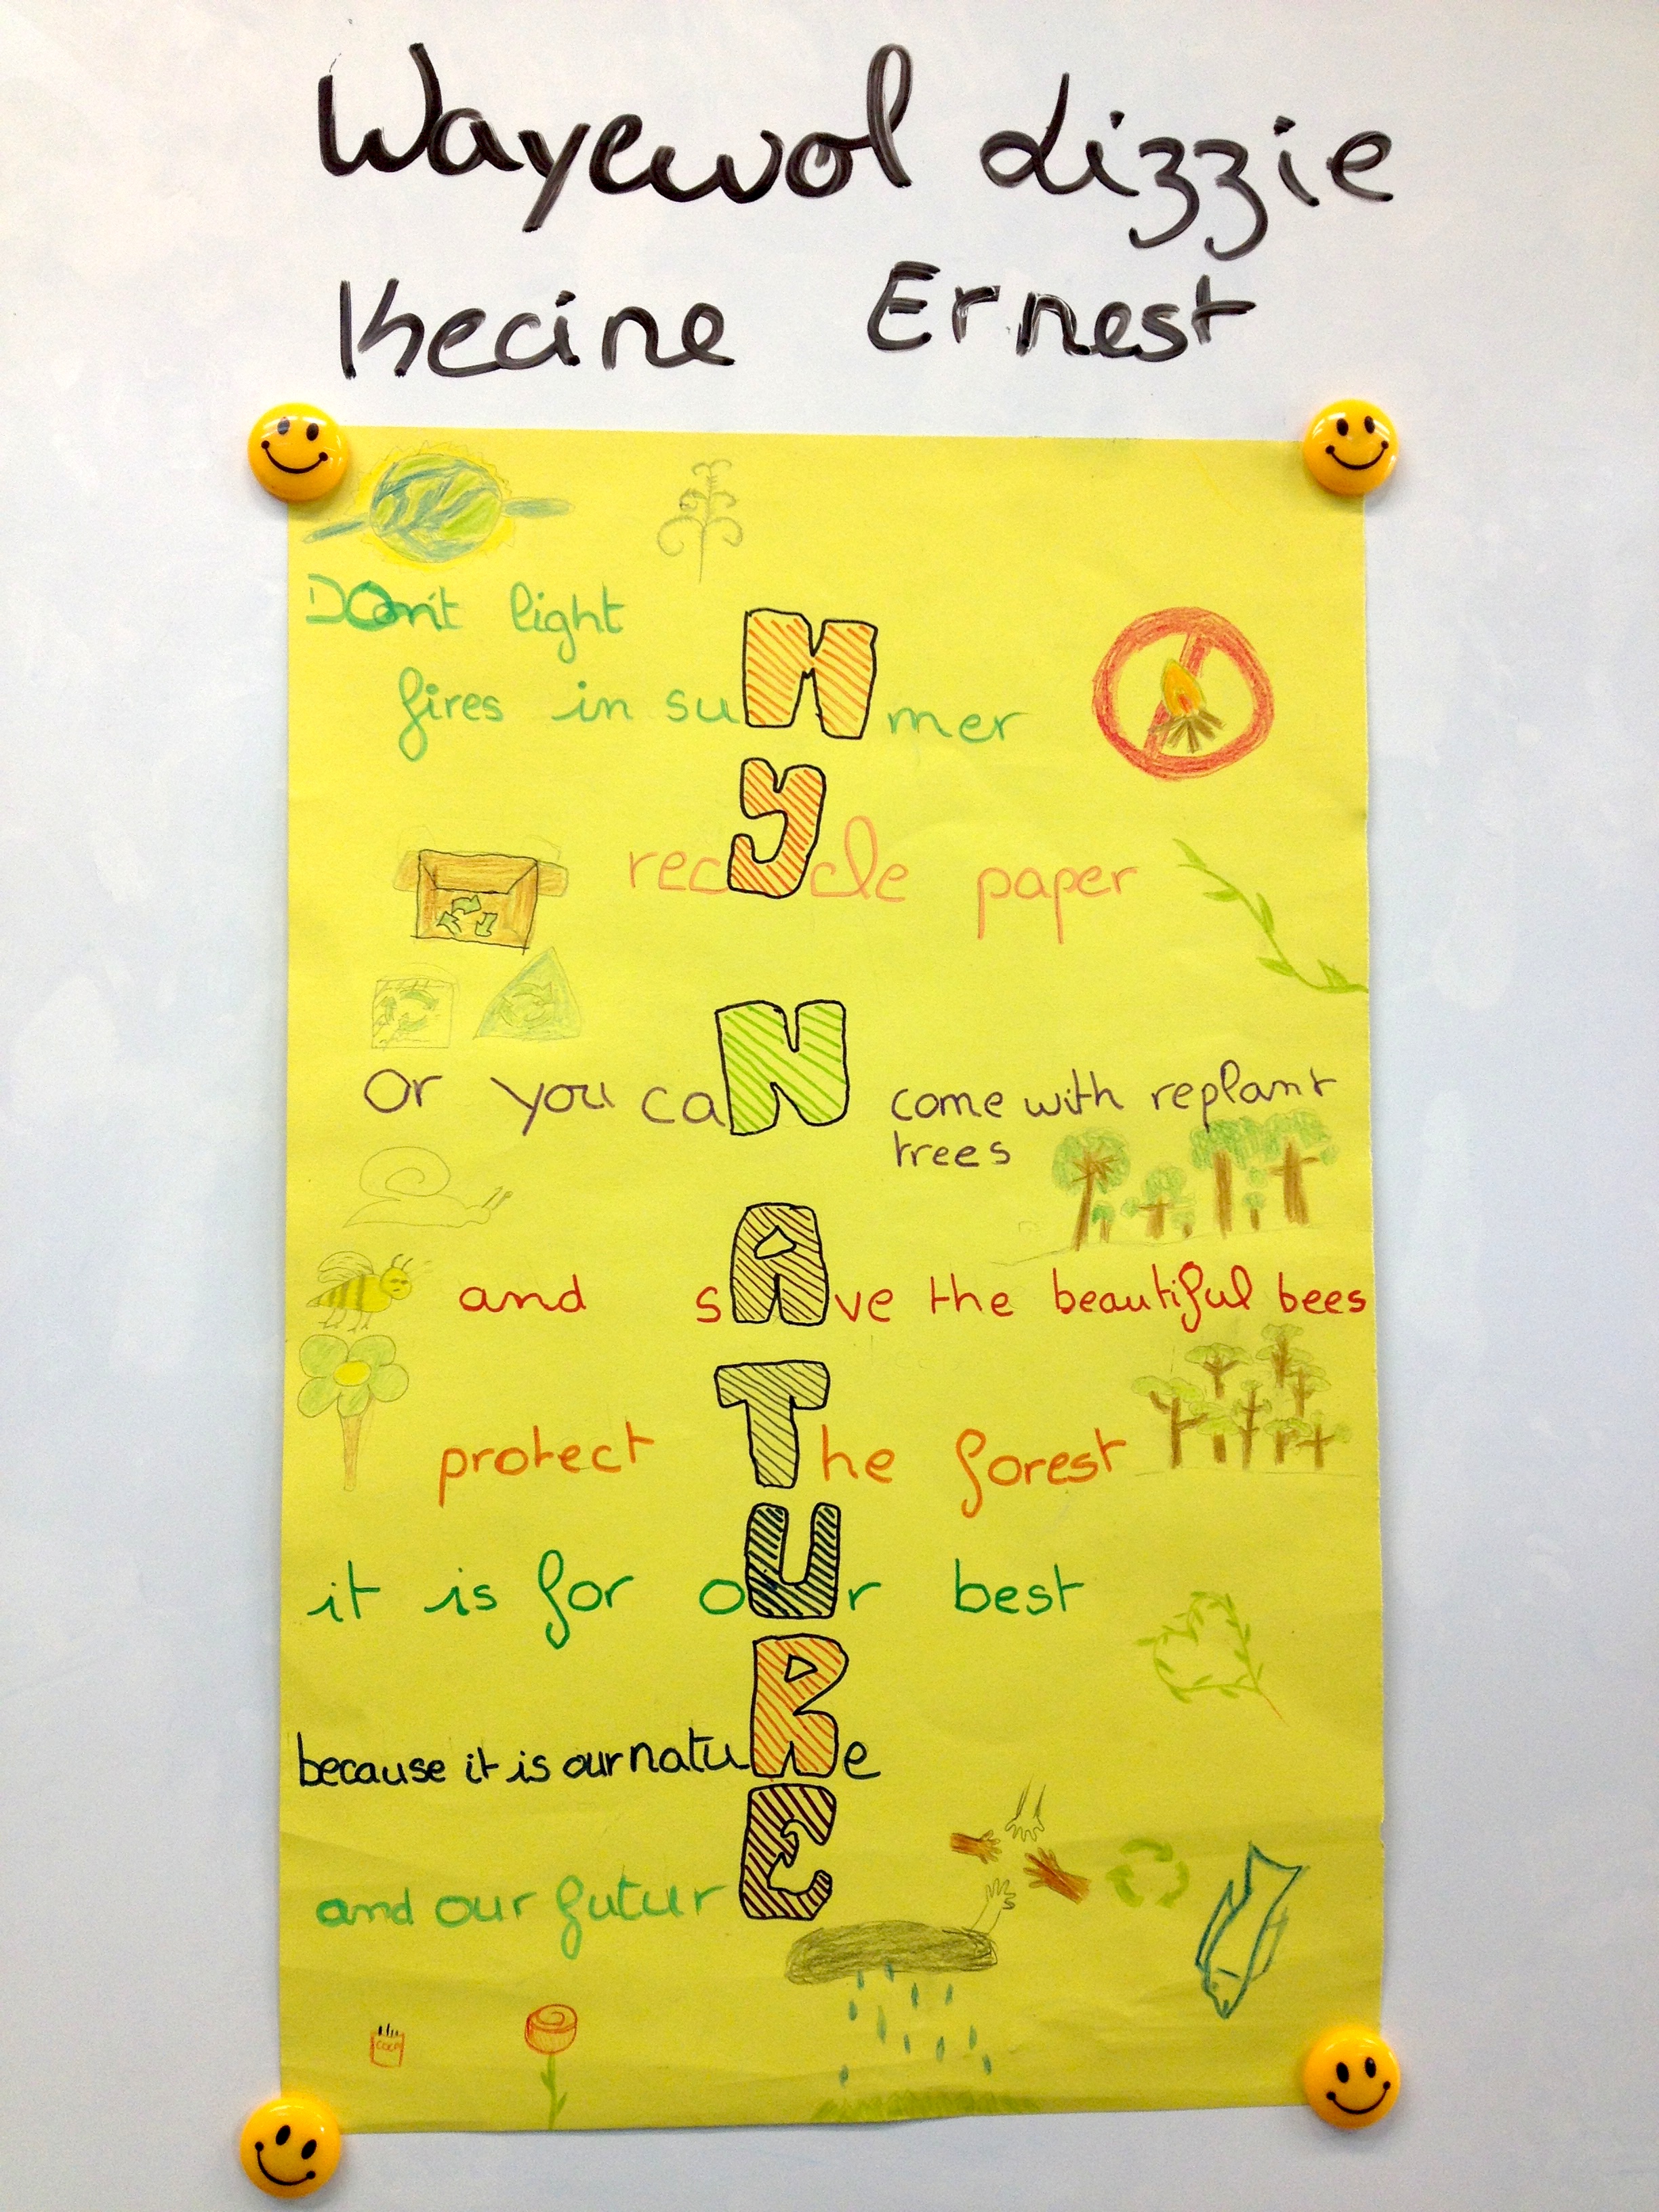 Wayewol Lizzie
Kecine Ernest
DOn't light
fires in suMmer
recYcle paper
Or you caN come with replant
trees
and sAve the beautiful bees
protect The forest
it is for oUr best
because it is our natuRe
and our futurE